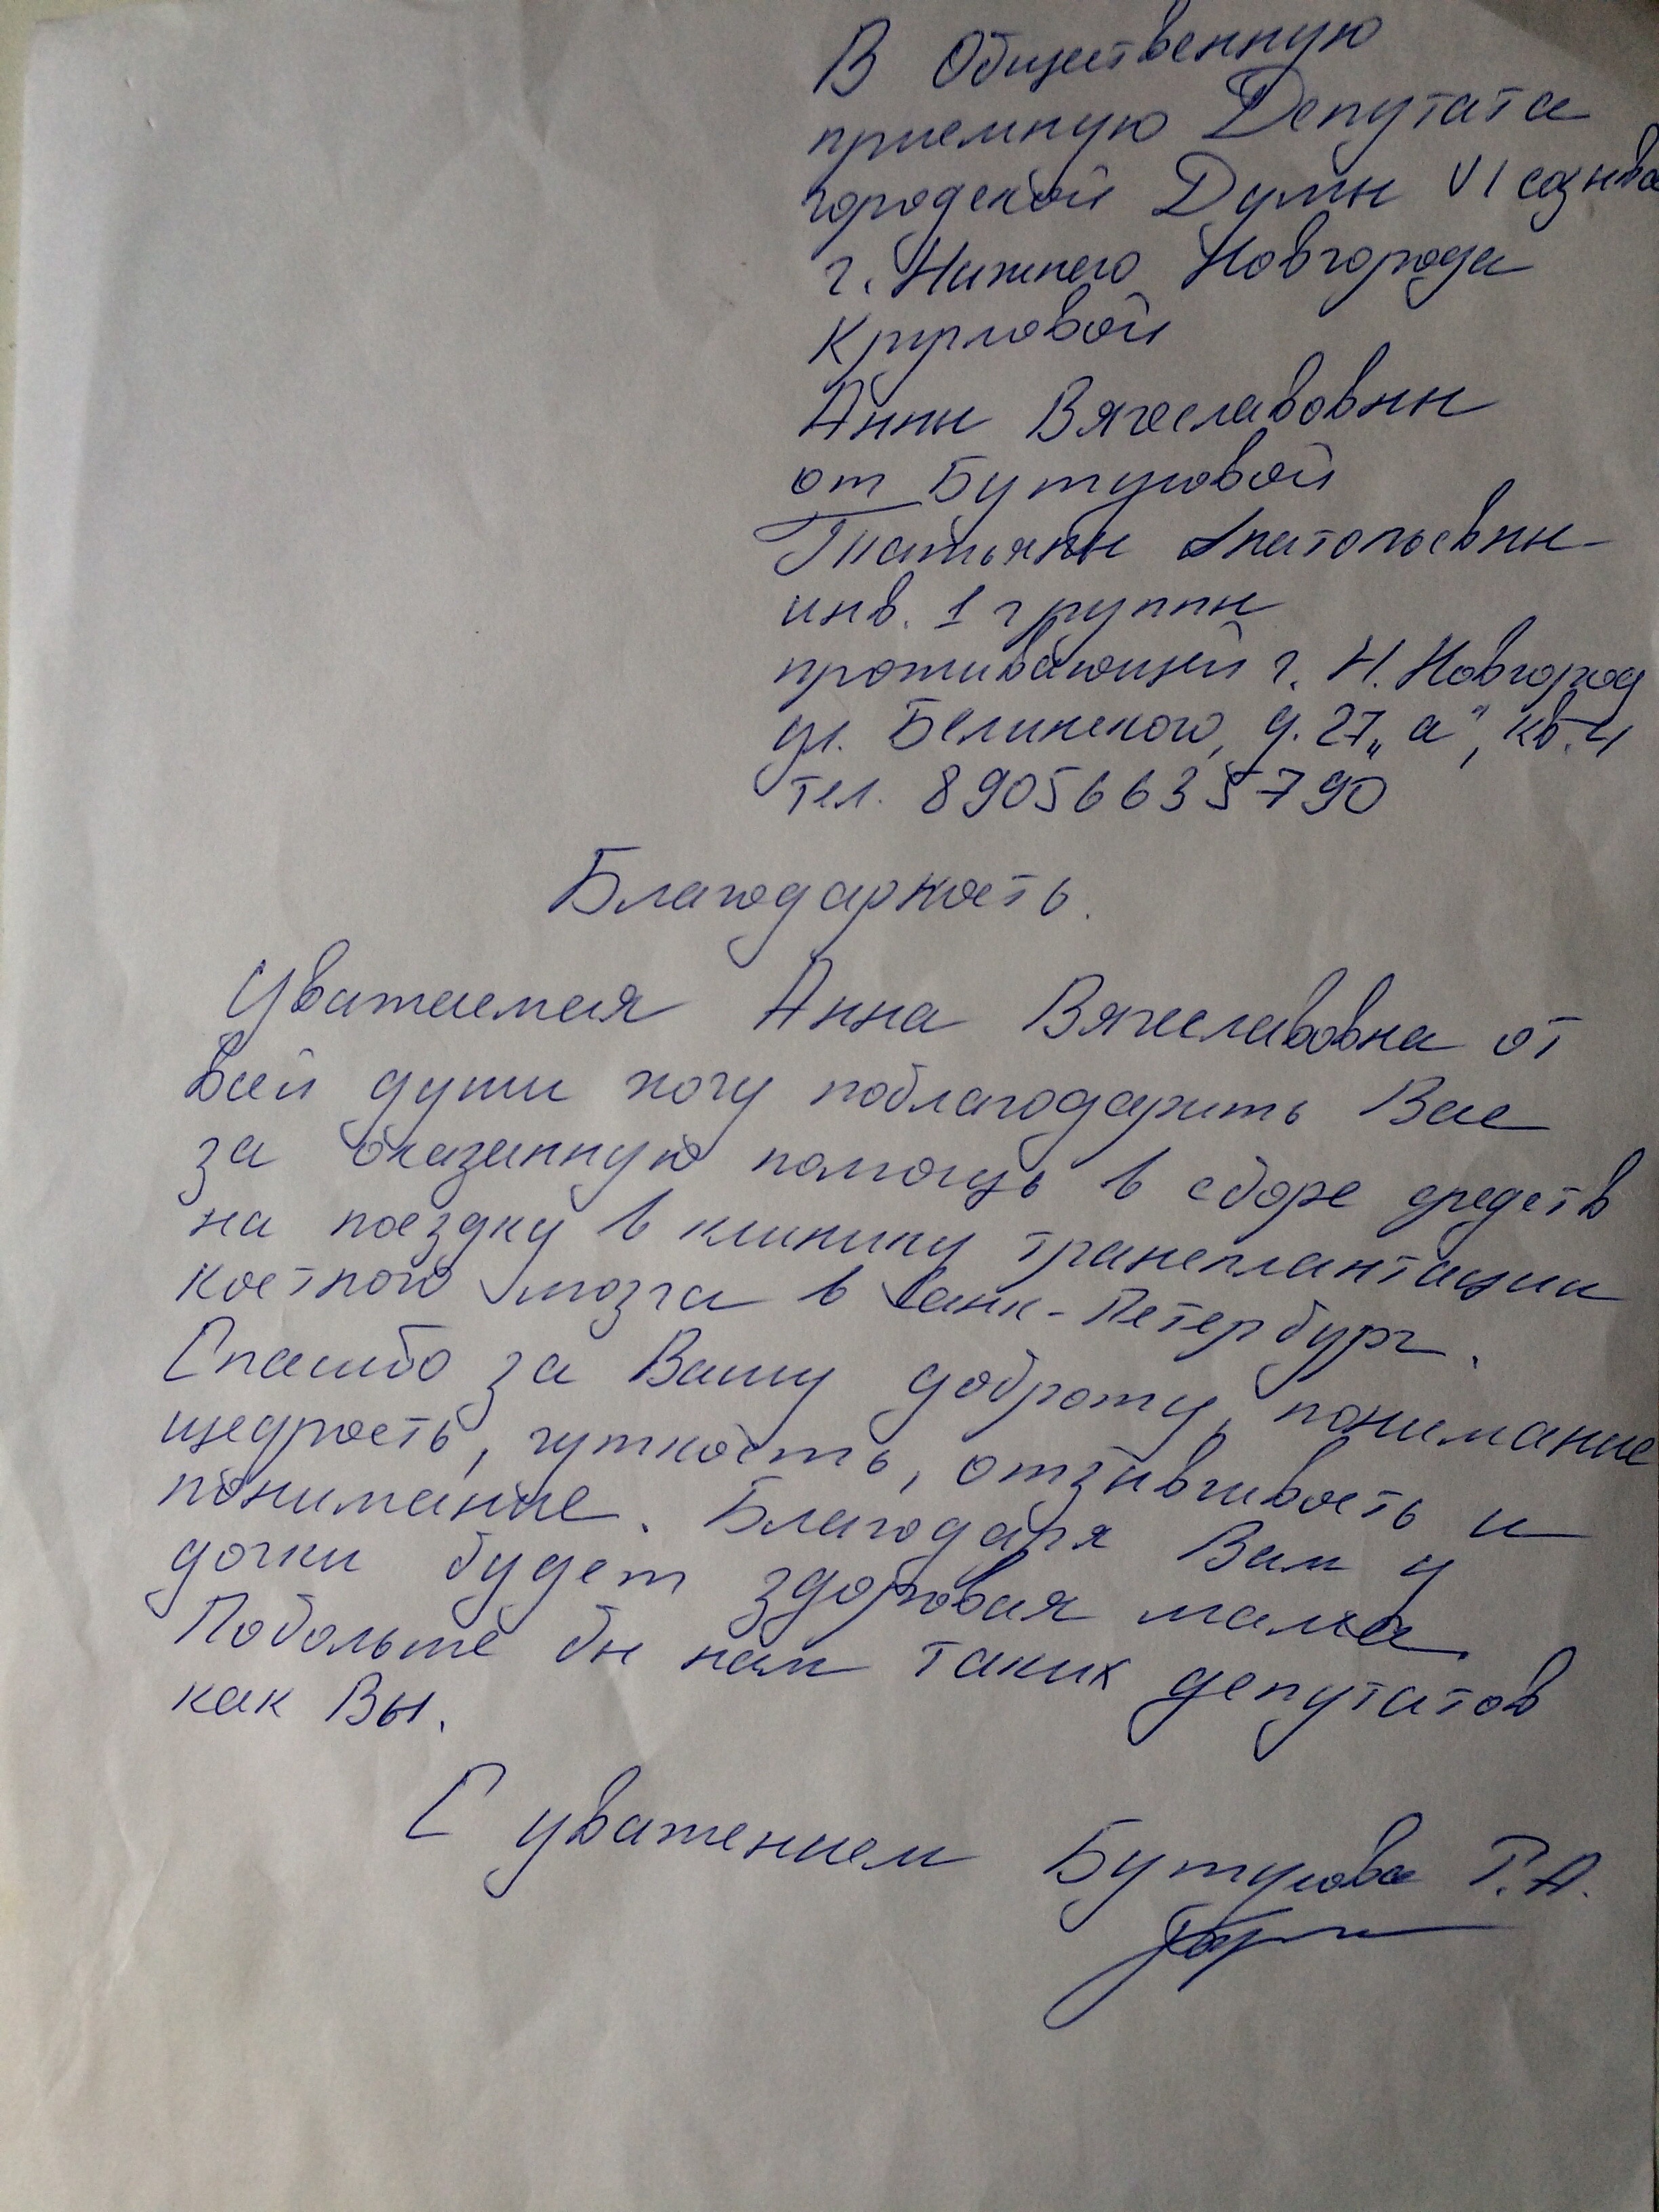 В Общественную
приемную Депутата
городской Думы VI созыва
г. Нижнего Новгорода
Кругловой
Анны Вячеславовны
от Бутусовой
Татьяны Анатольевны
инв. 1 группы
проживающей г. Н. Новгород
ул. Белинского, д. 27„а", кв. 4
тел. 89056635790
Благодарность.
Уважаемая Анна Вячеславовна от
всей души хочу поблагодарить Вас
за оказанную помощь в сборе средств
на поездку в клинику трансплантации
костного мозга в Санк-Петербург.
Спасибо за Вашу доброту, понимание
щедрость, чуткость, отзывчивость и
понимание. Благодаря Вам у
дочки будет здоровая мама.
Побольше бы нам таких депутатов
как Вы.
С уважением Бутусова Т.А.